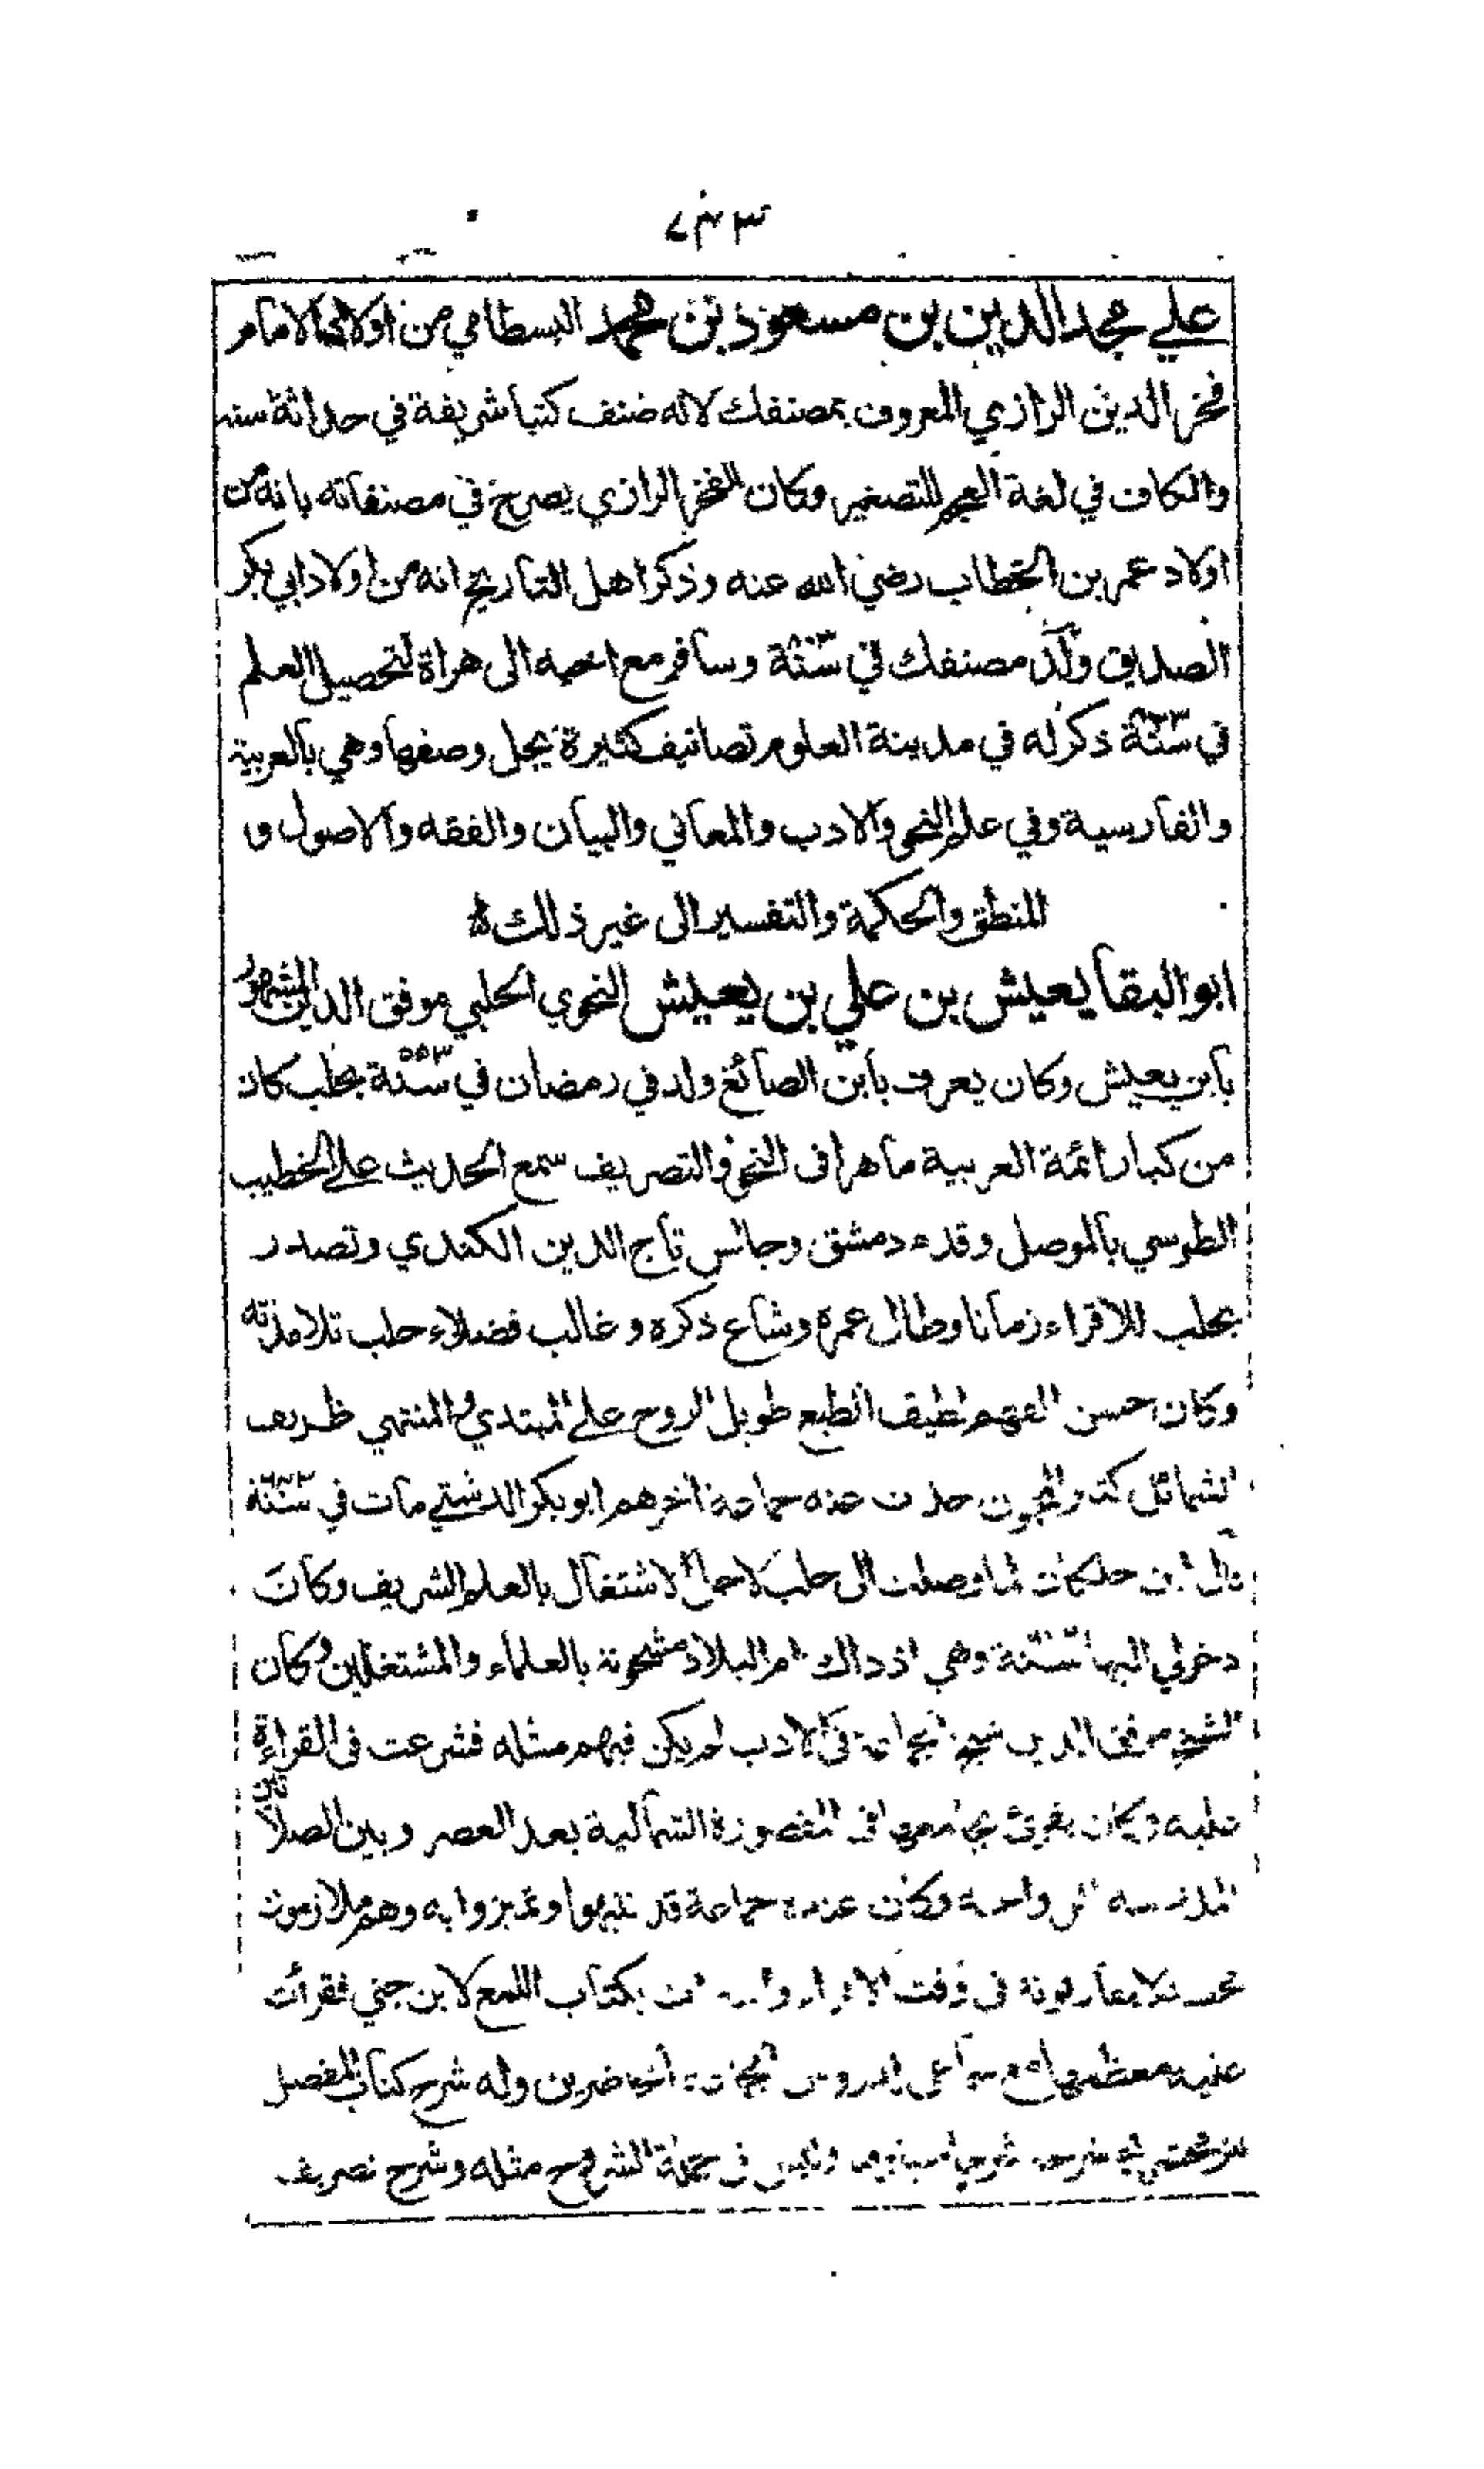 ٧٤٣
علي مجد الدين بن مسعود بن محمد البسطامي من اولاد الامام
فخر الدين الرازي المعروف بمصنفك لانه صنف كتبا شريفة في حداثة سنه
والكاف في لغة العجم للتصغير وكان الفخر الرازي يصرح في مصنفاته بانه من
اولاد عمر بن الخطاب رضي الله عنه وذكر اهل التاريخ انه من اولاد ابي بكر
الصديق ولد مصنفك في سنة وسافر مع اخيه الى هراة لتحصيل العلم
في سنة ذكر له في مدينة العلوم تصانيف كثيرة يجل وصفها وهي بالعربية
والفارسية وفي علم النحو والادب والمعاني والبيان والفقه والاصول و
المنطق والحكمة والتفسير الى غير ذلك
ابو البقا يعيش بن علي بن يعيش النحوي الحلبي موفق الدين المشهور
بابن يعيش وكان يعرف بابن الصائغ ولد في رمضان في سنة ٥٥٣ بحلب كان
من كبار ائمة العربية ماهرا في النحو والتصريف سمع الحديث على الخطيب
الطوسي بالموصل وقدم دمشق وجالس تاج الدين الكندي وتصدر
بحلب للاقراء زمانا وطال عمره وشاع ذكره و غالب فضلاء حلب تلامذته
وكان حسن الفهم لطيف الطبع طويل الروح على المبتدي والمنتهي ظريف
الشمائل كثير المجون حدث عنه جماعة اخرهم ابو بكر الدشتي مات في سنة
قال ابن خلكان لما وصلت الى حلب لاجل الاشتغال بالعلم الشريف وكان
دخولي اليها سنة وهي اذ ذاك ام البلاد مشحونة بالعلماء والمشتغلين وكان
الشيخ موفق الدين شيخ الجماعة في الادب لم يكن فيهم مثله فشرعت في القراءة
عليه وكان يقرئ بجامعها في المقصورة الشمالية بعد العصر وبين الصلاتين
بالمدرسة وكان عنده جماعة قد تنبهوا وتميزوا به وهم ملازمون
لا يفارقونه في وقت الاقراء بكتاب اللمع لابن جني فقرأت
عليه معظمها مع سماعي لدروس الجماعة الحاضرين وله شرح كتاب المفصل
للزمخشري شرحه شرحا وليس في جملة الشروح مثله وشرح تصريف